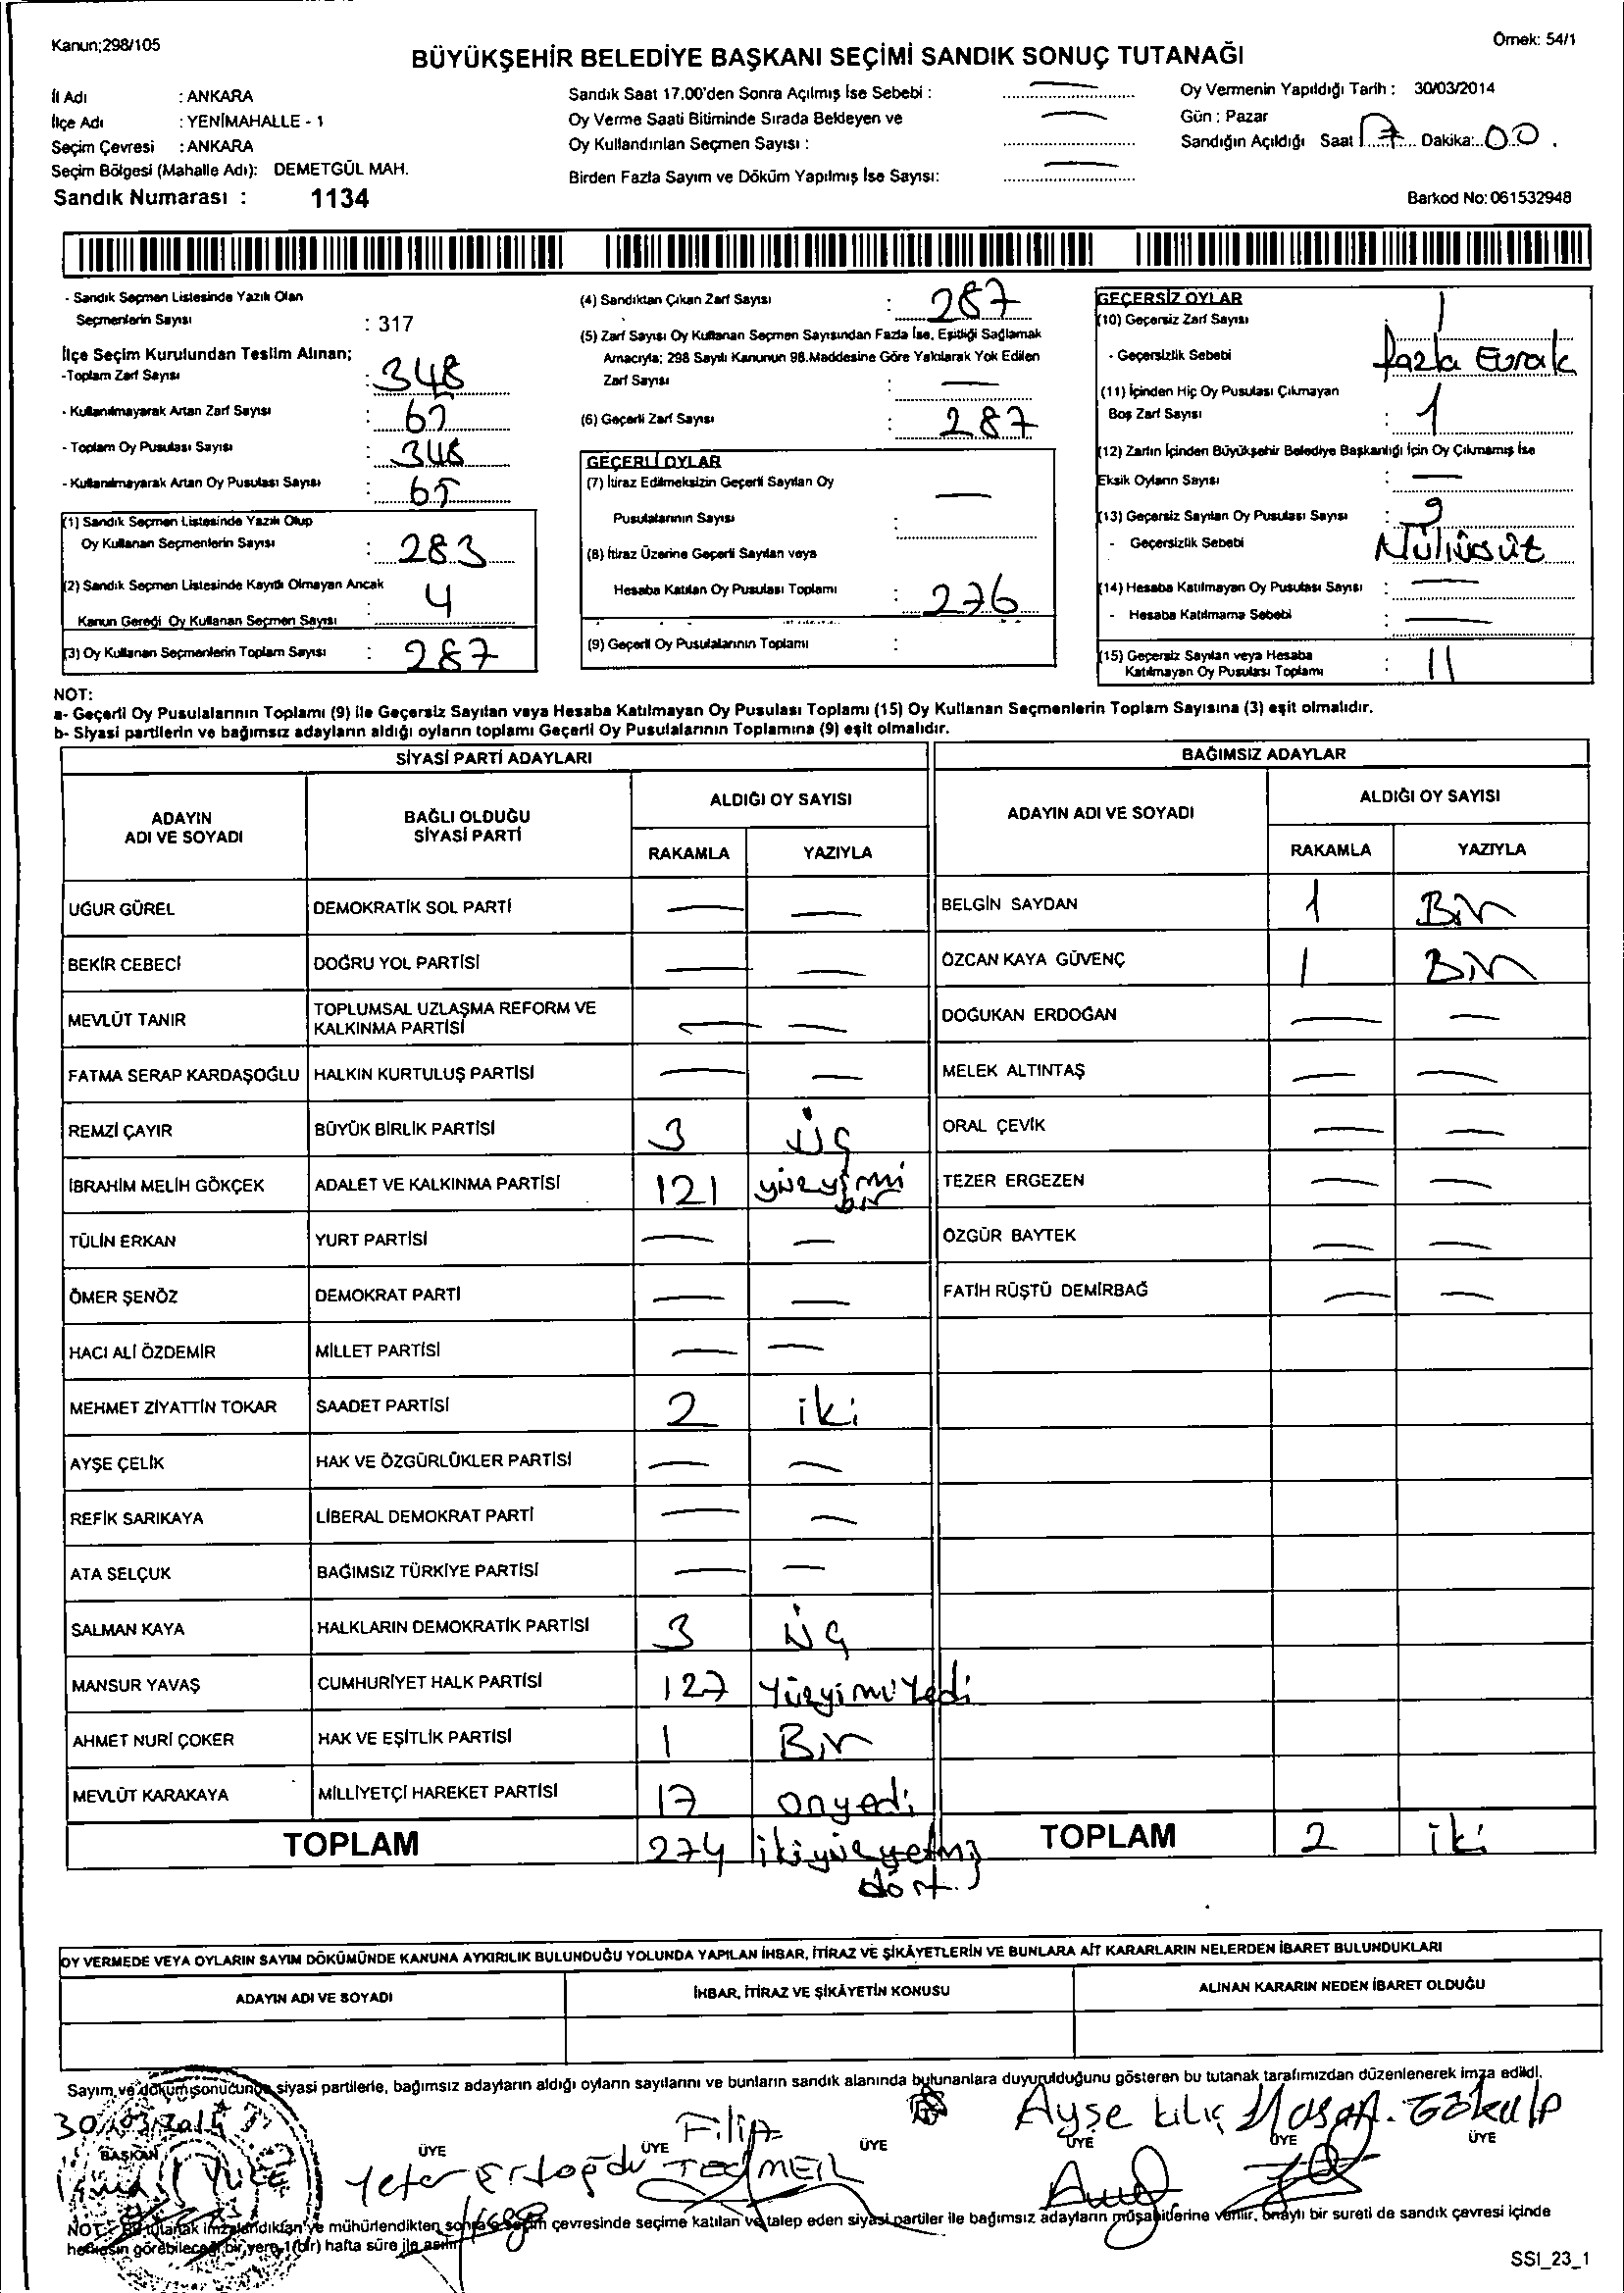 Kanun;298/105
Örnek: 54/1
BÜYÜKŞEHİR BELEDİYE BAŞKANI SEÇİMİ SANDIK SONUÇ TUTANAĞI
İl Adı : ANKARA
İlçe Adı : YENİMAHALLE - 1
Seçim Çevresi : ANKARA
Seçim Bölgesi (Mahalle Adı): DEMETGÜL MAH.
Sandık Numarası : 1134
Sandık Saat 17.00'den Sonra Açılmış İse Sebebi : —
Oy Verme Saati Bitiminde Sırada Bekleyen ve —
Oy Kullandırılan Seçmen Sayısı :
Birden Fazla Sayım ve Döküm Yapılmış İse Sayısı: —
Oy Vermenin Yapıldığı Tarih : 30/03/2014
Gün : Pazar
Sandığın Açıldığı Saat 17 Dakika: 00 .
Barkod No: 061532948
- Sandık Seçmen Listesinde Yazılı Olan
Seçmenlerin Sayısı : 317
İlçe Seçim Kurulundan Teslim Alınan;
-Toplam Zarf Sayısı : 348
- Kullanılmayarak Artan Zarf Sayısı :
- Toplam Oy Pusulası Sayısı : 348
- Kullanılmayarak Artan Oy Pusulası Sayısı : 65
(1) Sandık Seçmen Listesinde Yazılı Olup
Oy Kullanan Seçmenlerin Sayısı : 283
(2) Sandık Seçmen Listesinde Kayıtlı Olmayan Ancak
Kanun Gereği Oy Kullanan Seçmen Sayısı : 4
(3) Oy Kullanan Seçmenlerin Toplam Sayısı : 287
(4) Sandıktan Çıkan Zarf Sayısı : 287
(5) Zarf Sayısı Oy Kullanan Seçmen Sayısından Fazla İse, Eşitliği Sağlamak
Amacıyla; 298 Sayılı Kanunun 98.Maddesine Göre Yakılarak Yok Edilen
Zarf Sayısı : —
(6) Geçerli Zarf Sayısı : 287
GEÇERLİ OYLAR
(7) İtiraz Edilmeksizin Geçerli Sayılan Oy
Pusulalarının Sayısı : —
(8) İtiraz Üzerine Geçerli Sayılan veya
Hesaba Katılan Oy Pusulası Toplamı : 276
(9) Geçerli Oy Pusulalarının Toplamı :
GEÇERSİZ OYLAR
(10) Geçersiz Zarf Sayısı : 1
- Geçersizlik Sebebi fazla Evrak
(11) İçinden Hiç Oy Pusulası Çıkmayan
Boş Zarf Sayısı : 1
(12) Zarfın İçinden Büyükşehir Belediye Başkanlığı İçin Oy Çıkmamış İse
Eksik Oyların Sayısı : —
(13) Geçersiz Sayılan Oy Pusulası Sayısı : 9
- Geçersizlik Sebebi
(14) Hesaba Katılmayan Oy Pusulası Sayısı : —
- Hesaba Katılmama Sebebi : —
(15) Geçersiz Sayılan veya Hesaba
Katılmayan Oy Pusulası Toplamı : 11
NOT:
a- Geçerli Oy Pusulalarının Toplamı (9) ile Geçersiz Sayılan veya Hesaba Katılmayan Oy Pusulası Toplamı (15) Oy Kullanan Seçmenlerin Toplam Sayısına (3) eşit olmalıdır.
b- Siyasi partilerin ve bağımsız adayların aldığı oyların toplamı Geçerli Oy Pusulalarının Toplamına (9) eşit olmalıdır.
SİYASİ PARTİ ADAYLARI
ADAYIN
ADI VE SOYADI
BAĞLI OLDUĞU
SİYASİ PARTİ
ALDIĞI OY SAYISI
RAKAMLA YAZIYLA
UĞUR GÜREL DEMOKRATİK SOL PARTİ — —
BEKİR CEBECİ DOĞRU YOL PARTİSİ — —
MEVLÜT TANIR TOPLUMSAL UZLAŞMA REFORM VE
KALKINMA PARTİSİ — —
FATMA SERAP KARDAŞOĞLU HALKIN KURTULUŞ PARTİSİ — —
REMZİ ÇAYIR BÜYÜK BİRLİK PARTİSİ 3 üç
İBRAHİM MELİH GÖKÇEK ADALET VE KALKINMA PARTİSİ 121 yüzyirmi
bir
TÜLİN ERKAN YURT PARTİSİ — —
ÖMER ŞENÖZ DEMOKRAT PARTİ — —
HACI ALİ ÖZDEMİR MİLLET PARTİSİ — —
MEHMET ZİYATTİN TOKAR SAADET PARTİSİ 2 iki
AYŞE ÇELİK HAK VE ÖZGÜRLÜKLER PARTİSİ — —
REFİK SARIKAYA LİBERAL DEMOKRAT PARTİ — —
ATA SELÇUK BAĞIMSIZ TÜRKİYE PARTİSİ — —
SALMAN KAYA HALKLARIN DEMOKRATİK PARTİSİ 3 üç
MANSUR YAVAŞ CUMHURİYET HALK PARTİSİ 127 Yüzyirmi Yedi
AHMET NURİ ÇOKER HAK VE EŞİTLİK PARTİSİ 1 Bir
MEVLÜT KARAKAYA MİLLİYETÇİ HAREKET PARTİSİ 17 onyedi
TOPLAM 274 ikiyüzyetmiş
dört
BAĞIMSIZ ADAYLAR
ADAYIN ADI VE SOYADI
ALDIĞI OY SAYISI
RAKAMLA YAZIYLA
BELGİN SAYDAN 1 Bir
ÖZCAN KAYA GÜVENÇ 1 Bir
DOĞUKAN ERDOĞAN — —
MELEK ALTINTAŞ — —
ORAL ÇEVİK — —
TEZER ERGEZEN — —
ÖZGÜR BAYTEK — —
FATİH RÜŞTÜ DEMİRBAĞ — —
TOPLAM 2 iki
OY VERMEDE VEYA OYLARIN SAYIM DÖKÜMÜNDE KANUNA AYKIRILIK BULUNDUĞU YOLUNDA YAPILAN İHBAR, İTİRAZ VE ŞİKÂYETLERİN VE BUNLARA AİT KARARLARIN NELERDEN İBARET BULUNDUKLARI
ADAYIN ADI VE SOYADI
İHBAR, İTİRAZ VE ŞİKÂYETİN KONUSU
ALINAN KARARIN NEDEN İBARET OLDUĞU
Sayım ve döküm sonucunda siyasi partilerle, bağımsız adayların aldığı oyların sayılarını ve bunların sandık alanında bulunanlara duyurulduğunu gösteren bu tutanak tarafımızdan düzenlenerek imza edildi.
30/03/2014
BAŞKAN ÜYE ÜYE ÜYE ÜYE ÜYE ÜYE
Yeter Ertoğdu
Filiz
Ayşe Kılıç
Hasan Gökalp
NOT: Bu tutanak imzalandıktan ve mühürlendikten sonra seçim çevresinde seçime katılan ve talep eden siyasi partiler ile bağımsız adayların müşahitlerine verilir, onaylı bir sureti de sandık çevresi içinde
herkesin görebileceği bir yere 1(bir) hafta süre ile asılır
SSI_23_1